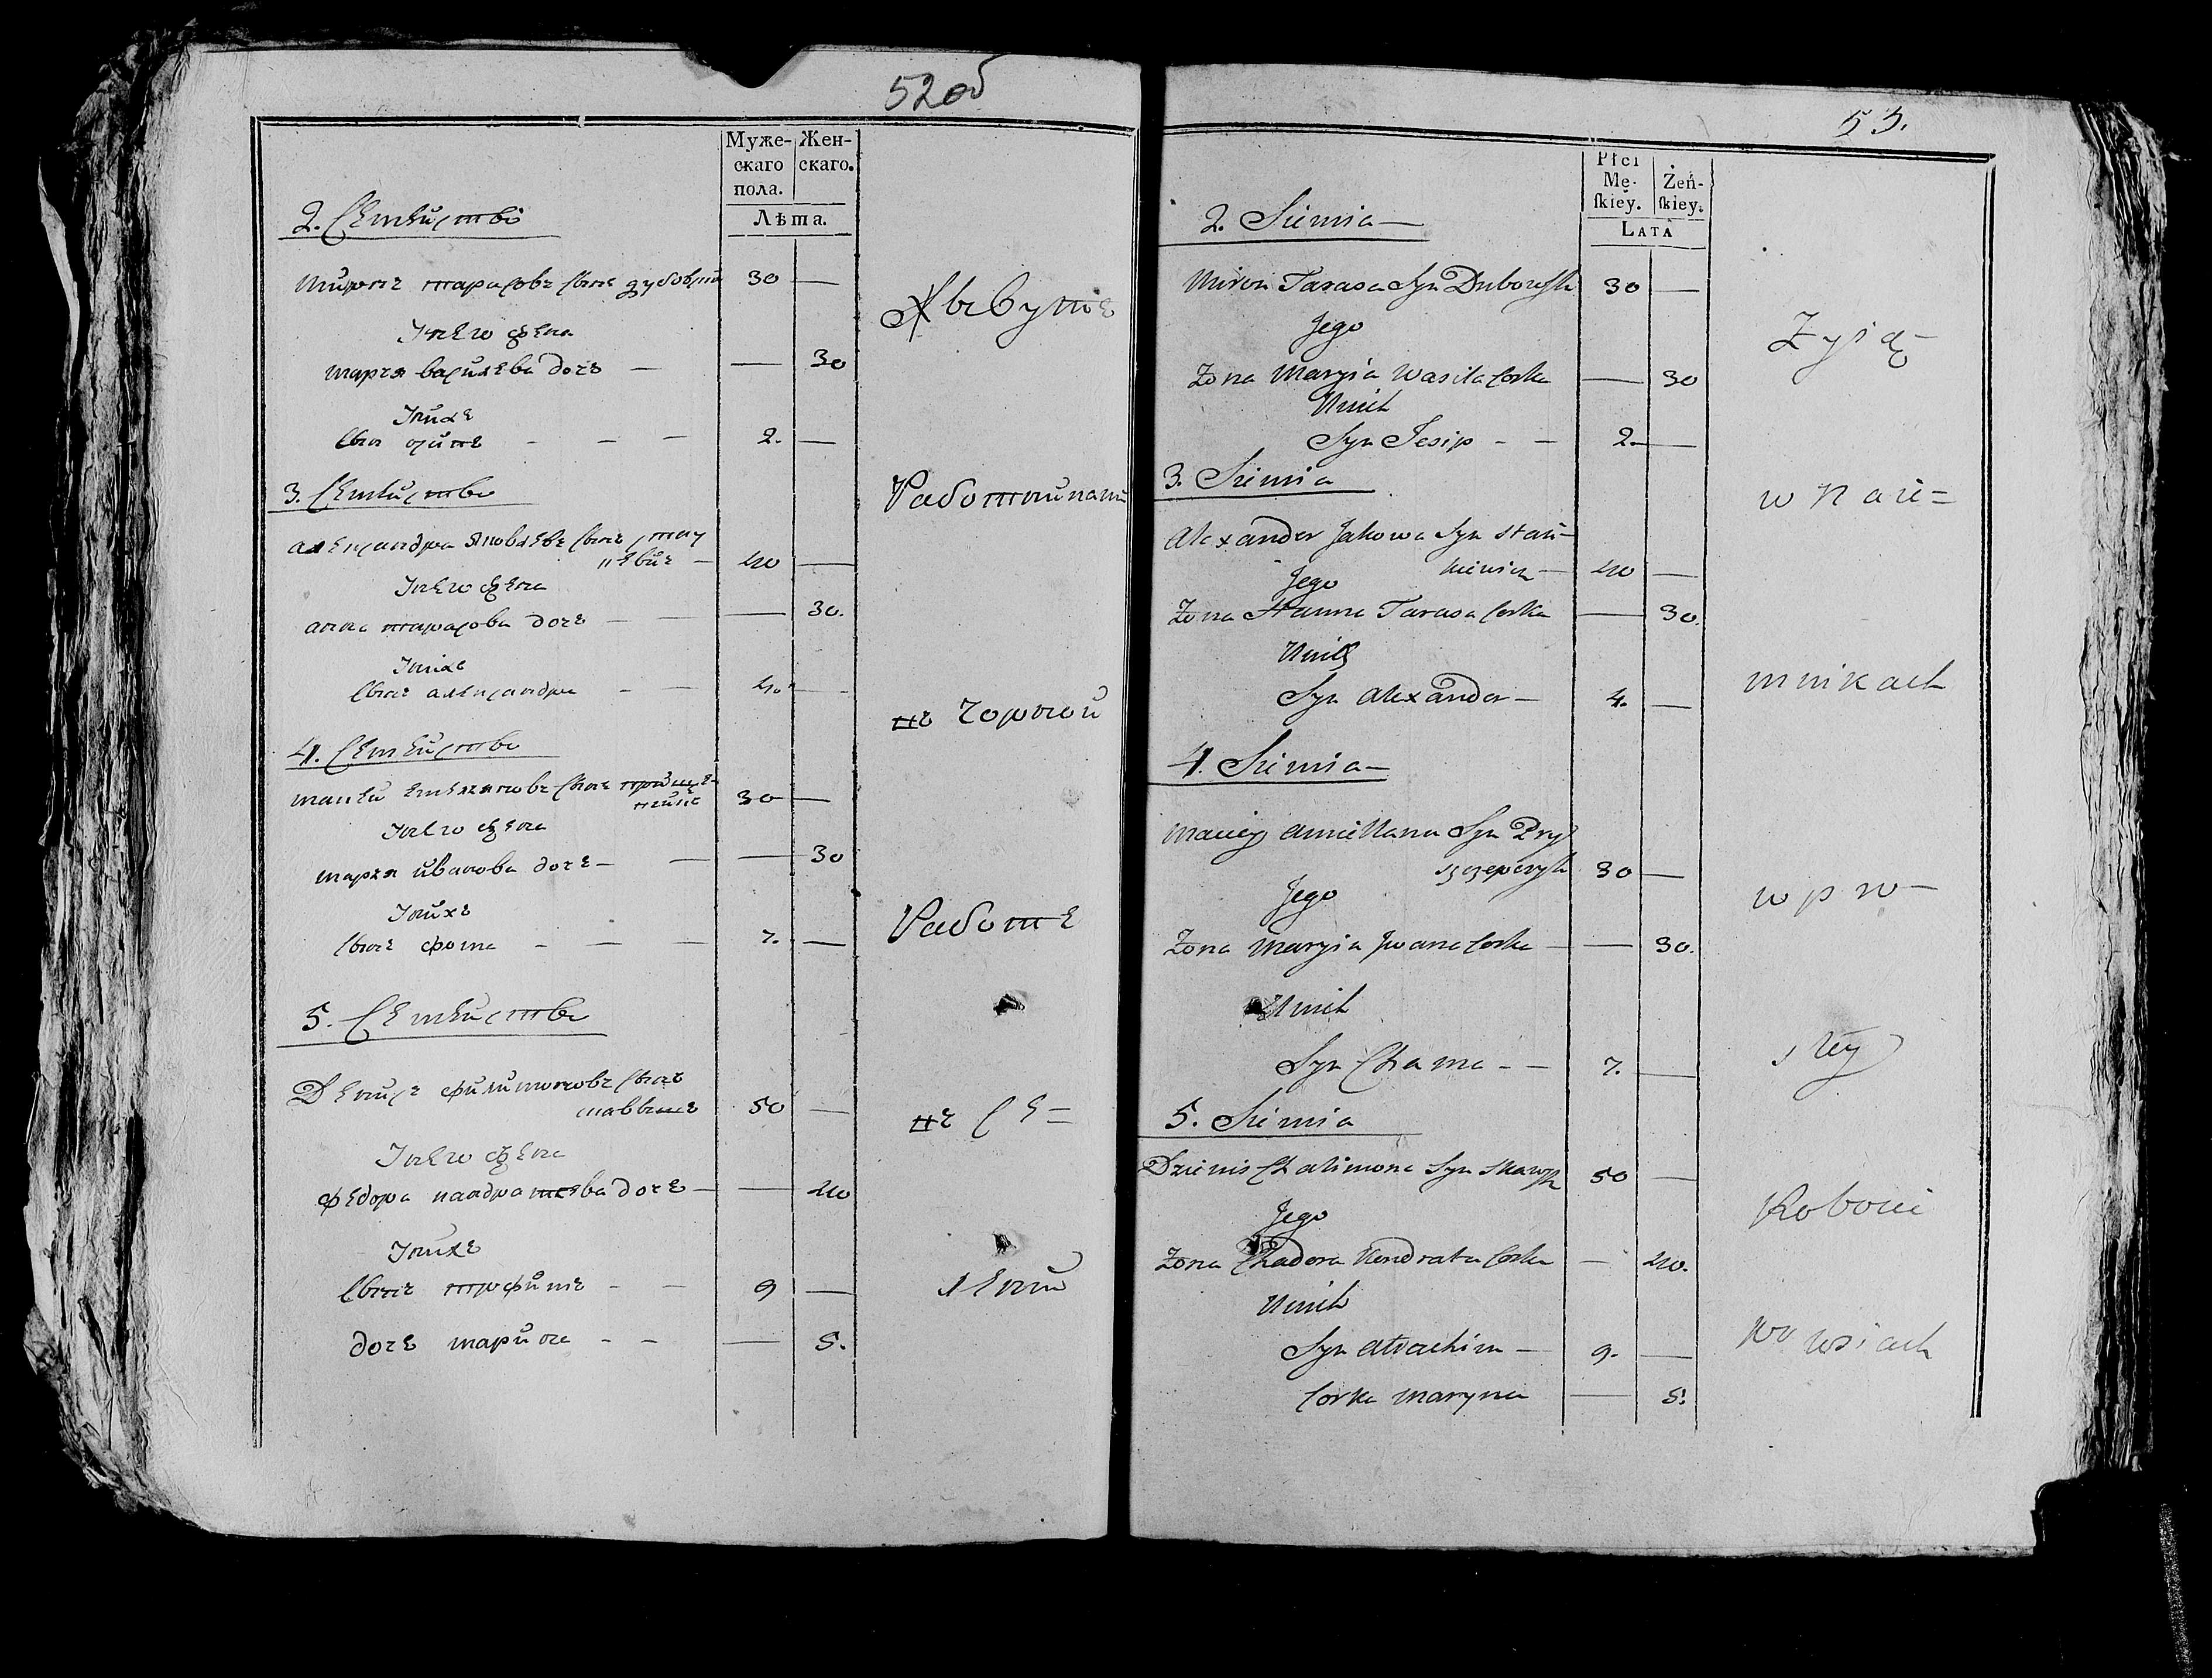 52об
Муже- Жен-
скаго скаго.
пола.
Лѣта.
2. Семейство
миронъ тарасовъ сынъ дубовик 30 —
Унего жена
марья василева дочь — — 30
Унихъ
сын осипъ - - — 2. —
3. Семейство
александра яковлевъ сынъ стан
кевичъ — 40 —
Унего жена
анна тарасова дочь — — — 30.
Унихъ
сынъ александра - — 4. —
4. Семейство
матей емеляновъ сынъ
30 —
Унего жена
марья иванова дочь — — — 30
Унихъ
сынъ фома - — — 7. —
5. Семейство
Денисъ филимоновъ сынъ
50 —
Унего жена
федора кандратьева дочь — — 40
Унихъ
сынъ трофимъ - — 9 —
дочь марина - - — 5.
Живутъ
Работниками
въ чорной
Работе
въ се=
лении
53.
Płci
Mę- Żeń-
ſkiey. ſkiey.
LATA
2. Siemia —
Miron Tarasa Syn Dubowik 30 —
Jego
Zona Maryia Wasila Corka — 30
Unich
Syn Jesip - — 2. —
3. Siemia
Alexander Jakowa Syn Stan-
kiewicz — 40 —
Jego
Zona Hanna Tarasa Corka — 30.
Unich
Syn Alexander — 4. —
4. Siemia —
Maciey Amiellana Syn Pry
szczepczyk 30 —
Jego
Zona Maryia Jwana Corka — — 30.
Unich
Syn Chama - — 7. —
5. Siemia
Dzienis Chalimona Syn 50 —
Jego
Zona Chadora Kondrata Corka — 40.
Unich
Syn Atrachim — 9. —
Corka Maryna — 5.
Zyią
w Naie=
mnikach
w pro-
stey
Robocie
wo wsiach